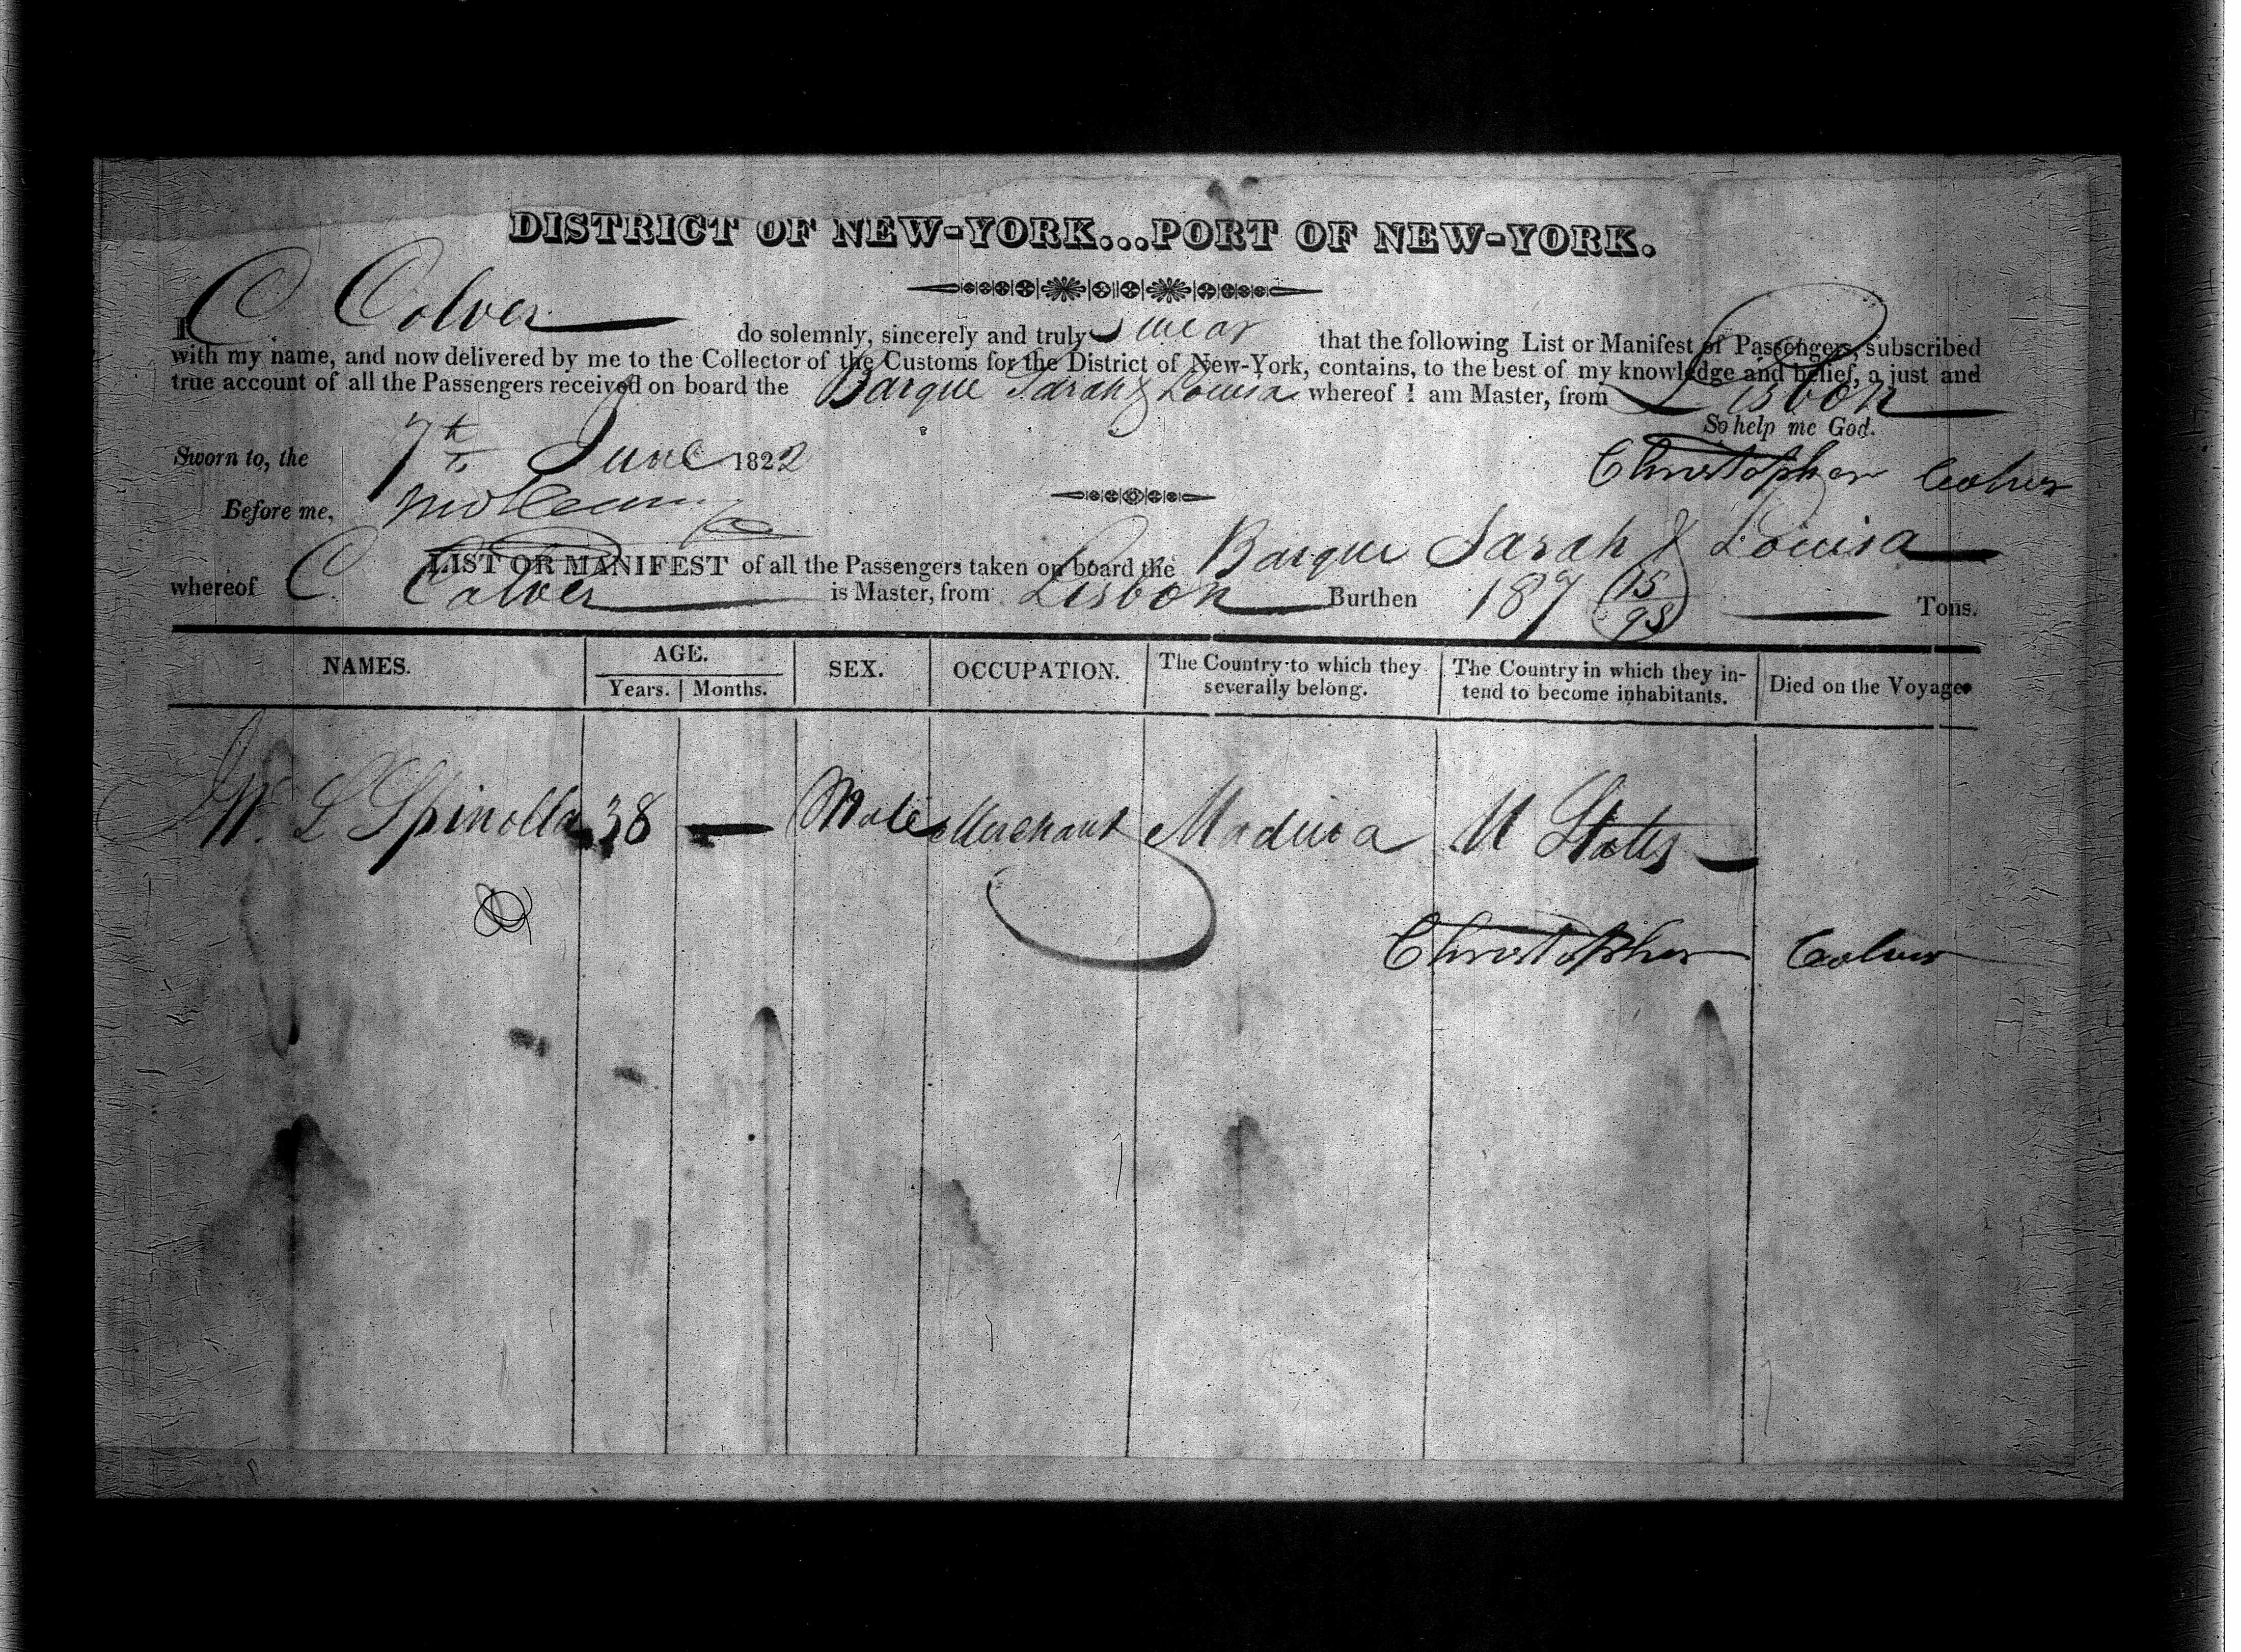 DISTRICT OF NEW-YORK...PORT OF NEW-YORK.
I C Colver do solemnly, sincerely and truly swear that the following List or Manifest of Passengers, subscribed
with my name, and now delivered by me to the Collector of the Customs for the District of New-York, contains, to the best of my knowledge and belief, a just and
true account of all the Passengers received on board the Barque Sarah & Louisa whereof I am Master, from Lisbon
So help me God.
Sworn to, the 7th June 1822
Christopher Colver
Before me,
LIST OR MANIFEST of all the Passengers taken on board the Barque Sarah & Louisa
whereof C. Colver is Master, from Lisbon Burthen 187 15/95 Tons.
NAMES. AGE. SEX. OCCUPATION. The Country to which they severally belong. The Country in which they intend to become inhabitants. Died on the Voyage.
Years. Months.
W. L Spinolla 38 — Male Merchant Madeira U States
Christopher Colver